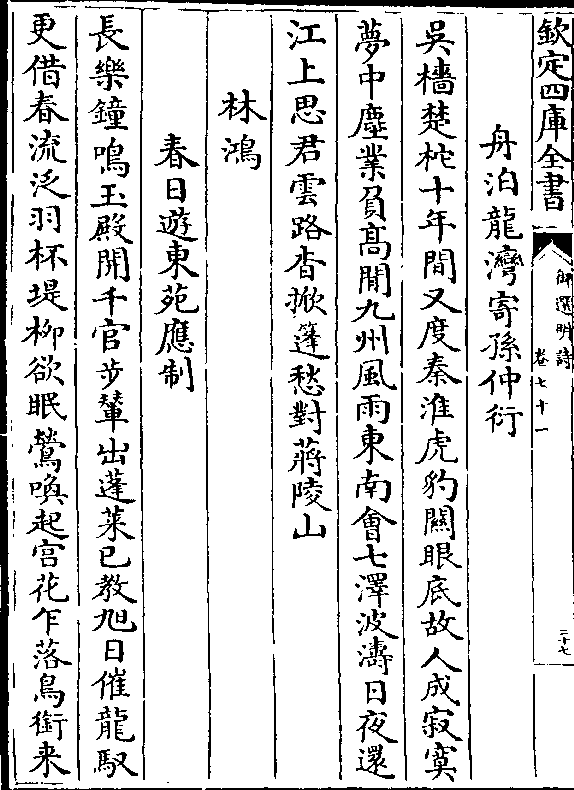 欽定四庫全書
御選明詩
卷七十一
三十七
舟泊龍灣寄孫仲衍
吳檣楚柁十年間又度秦淮虎豹關眼底故人成寂寞
夢中塵業負髙閒九州風雨東南會七澤波濤日夜還
江上思君雲路杳掀篷愁對蔣陵山
林鴻
春日遊東苑應制
長樂鐘鳴玉殿開千官步輦出蓬萊已教旭日催龍馭
更借春流泛羽杯堤柳欲眠鶯喚起宫花乍落鳥銜来